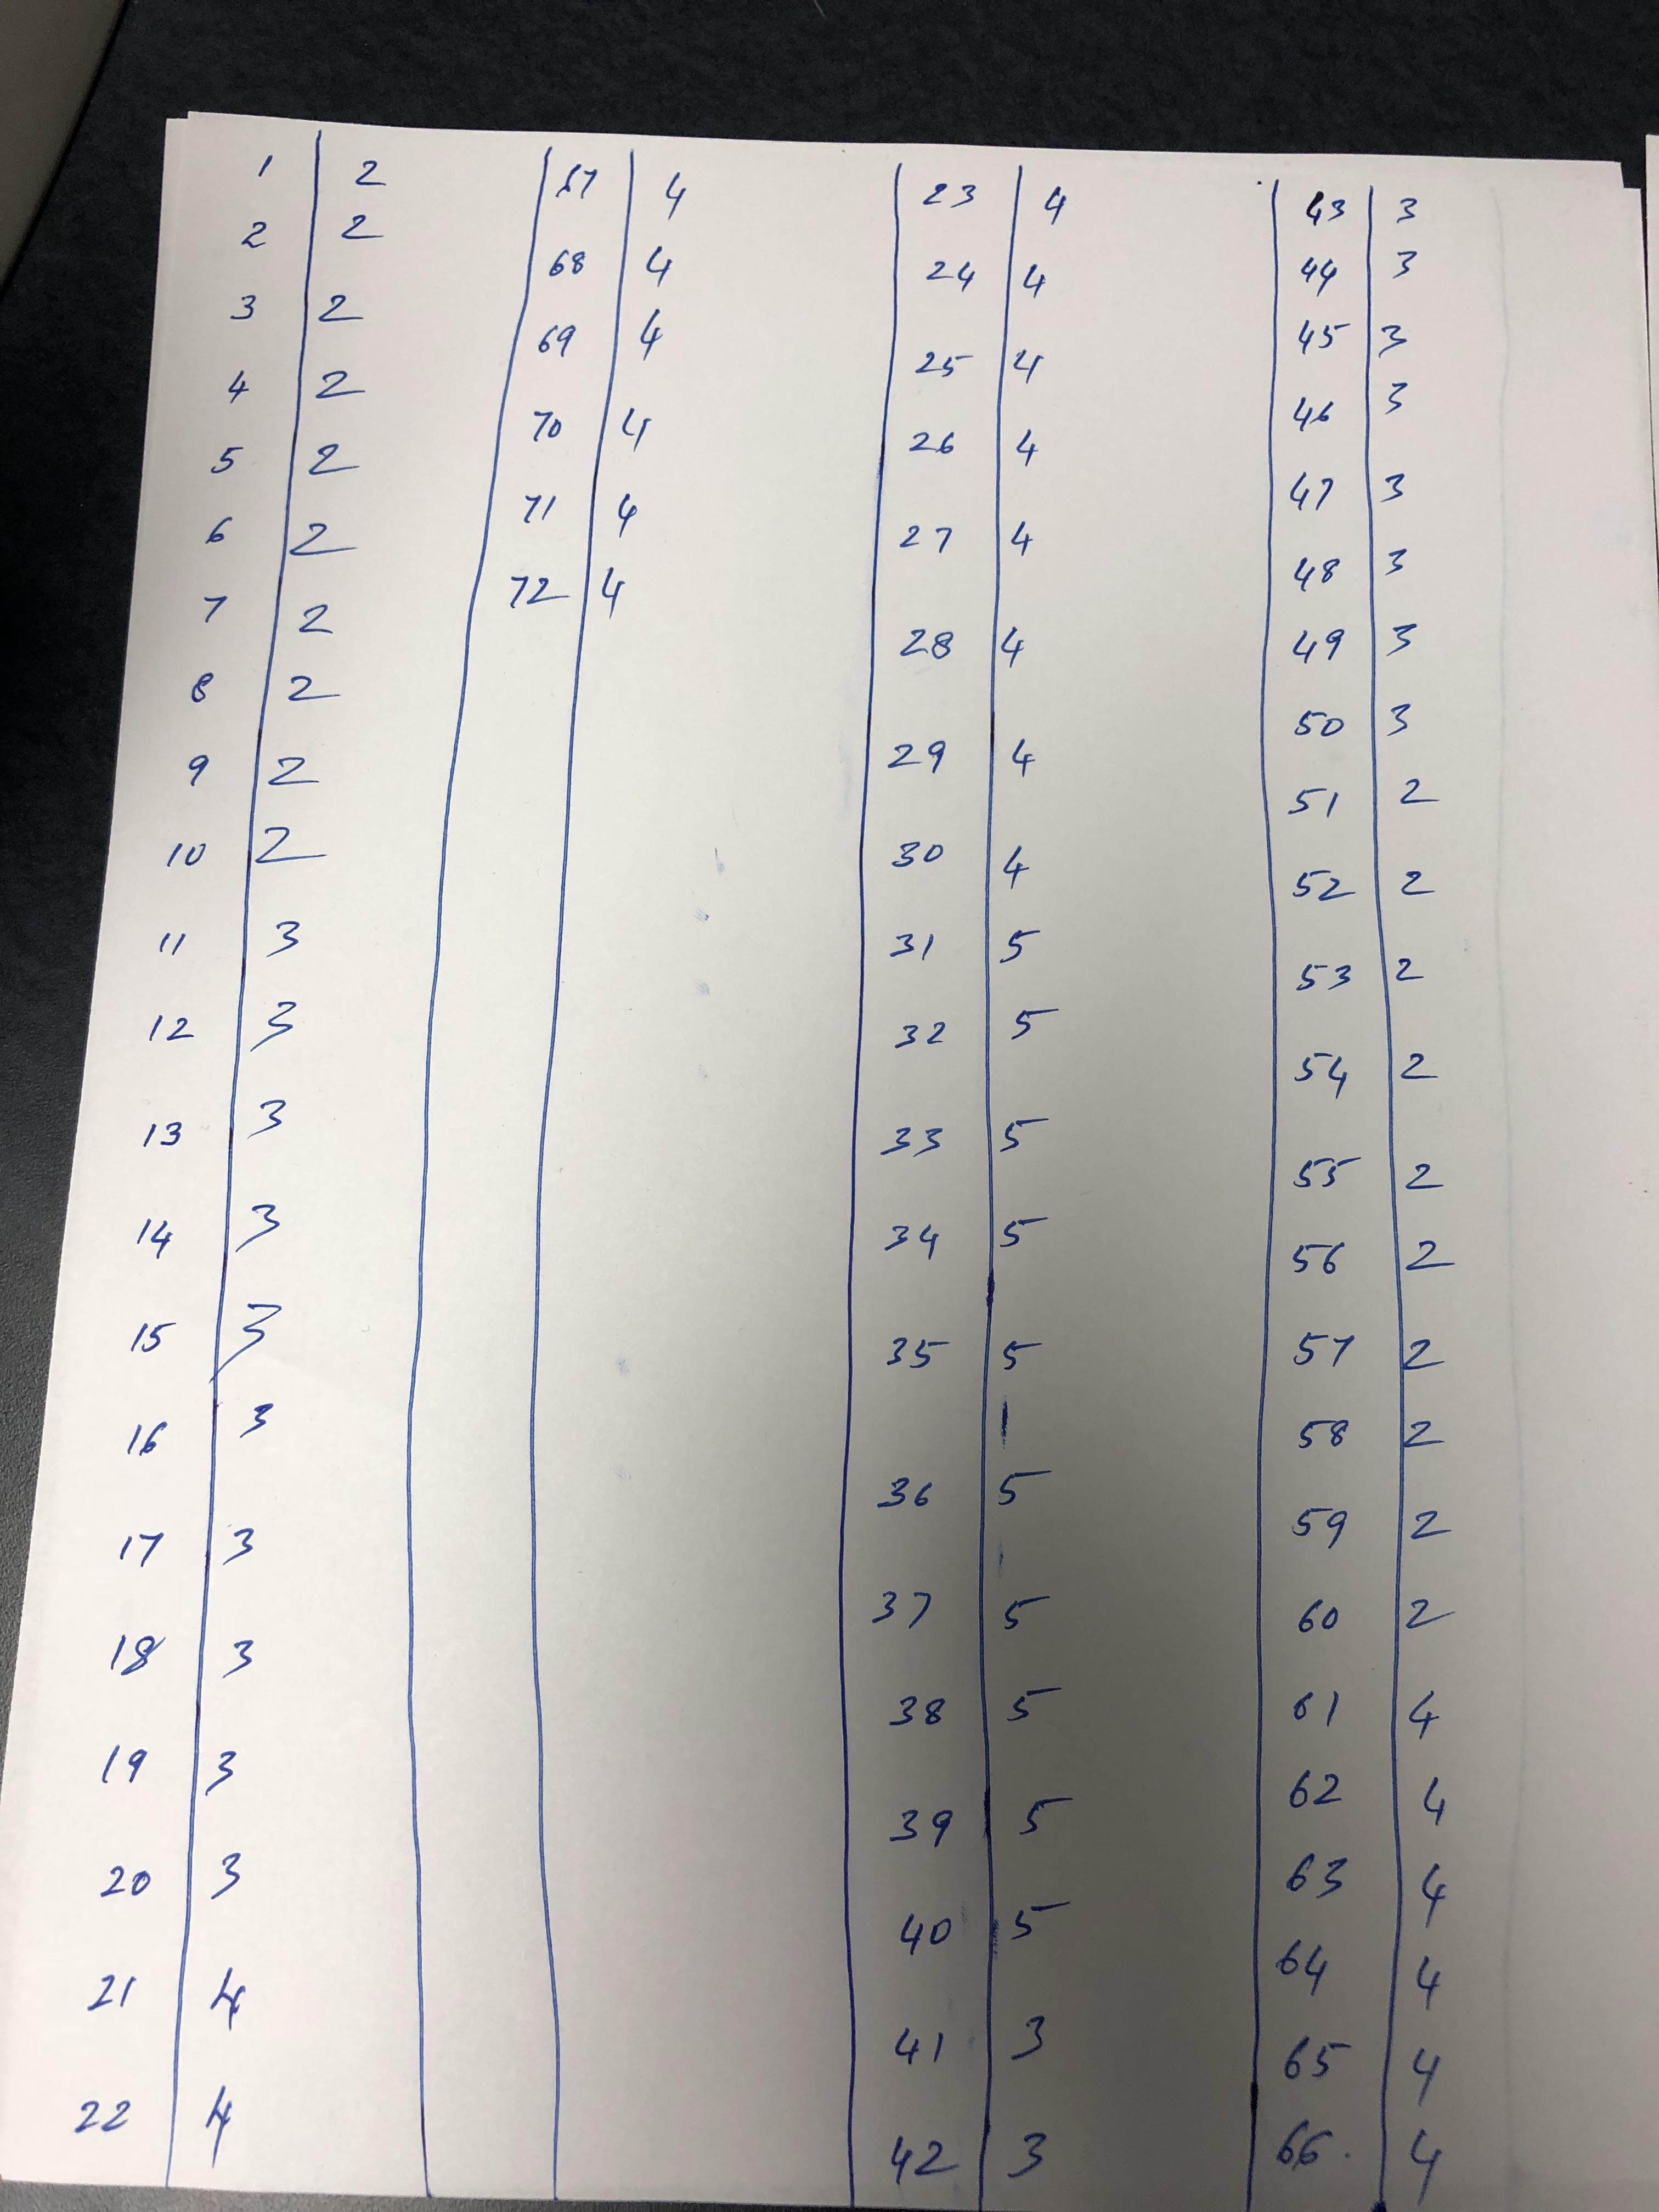 1 2
2 2
3 2
4 2
5 2
6 2
7 2
8 2
9 2
10 2
11 3
12 3
13 3
14 3
15 3
16 3
17 3
18 3
19 3
20 3
21 4
22 4
67 4
68 4
69 4
70 4
71 4
72 4
23 4
24 4
25 4
26 4
27 4
28 4
29 4
30 4
31 5
32 5
33 5
34 5
35 5
36 5
37 5
38 5
39 5
40 5
41 3
42 3
43 3
44 3
45 3
46 3
47 3
48 3
49 3
50 3
51 2
52 2
53 2
54 2
55 2
56 2
57 2
58 2
59 2
60 2
61 4
62 4
63 4
64 4
65 4
66. 4